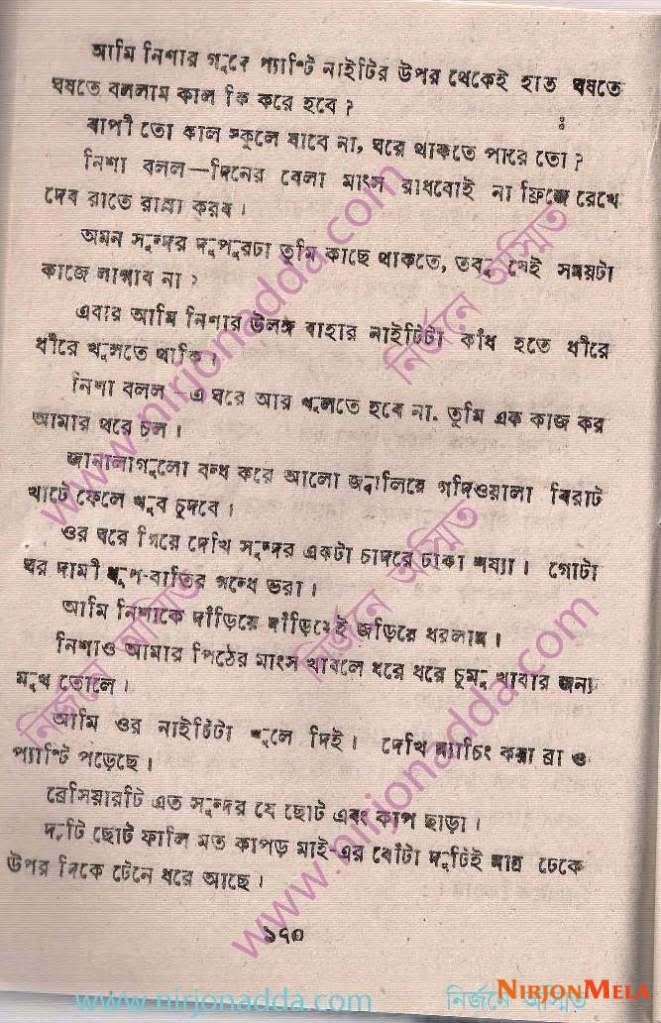 আমি নিশার গুদে প্যান্টি নাইটির উপর থেকেই হাত ঘষতে
ঘষতে বললাম কাল কি করে হবে ?
বাপী তো কাল স্কুলে যাবে না, ঘরে থাকতে পারে তো ?
নিশা বলল—দিনের বেলা মাংস রাধবোই না ফ্রিজে রেখে
দেব রাতে রান্না করব ।
অমন সুন্দর দুপুরটা তুমি কাছে থাকতে, তবু সেই সময়টা
কাজে লাগাব না ?
এবার আমি নিশার উলঙ্গ বাহার নাইটিটা কাঁধ হতে ধীরে
ধীরে খুলতে থাকি ।
নিশা বলল এ ঘরে আর খুলতে হবে না. তুমি এক কাজ কর
আমার ঘরে চল ।
জানালাগুলো বন্ধ করে আলো জ্বালিয়ে গদিওয়ালা বিরাট
খাটে ফেলে খুব চুদবে ।
ওর ঘরে গিয়ে দেখি সুন্দর একটা চাদরে ঢাকা শয্যা । গোটা
ঘর দামী ধূপ-বাতির গন্ধে ভরা ।
আমি নিশাকে দাঁড়িয়ে দাঁড়িয়েই জড়িয়ে ধরলাম ।
নিশাও আমার পিঠের মাংস খাবলে ধরে ধরে চুমু খাবার জন্য
মুখ তোলে ।
আমি ওর নাইটিটা খুলে দিই । দেখি ম্যাচিং করা ব্রা ও
প্যান্টি পড়েছে ।
ব্রেসিয়ারটি এত সুন্দর যে ছোট এবং কাপ ছাড়া ।
দুটি ছোট ফালি মত কাপড় মাই এর বোঁটা দুটিই মাত্র ঢেকে
উপর দিকে টেনে ধরে আছে ।
১৭০
www.nirjonadda.com
নির্জনে অস্মিত
www.nirjonadda.com
নির্জনে অস্মিত
নির্জনে অস্মিত
www.nirjonadda.com
www.nirjonadda.com
নির্জনে অস্মিত
NIRJONMELA